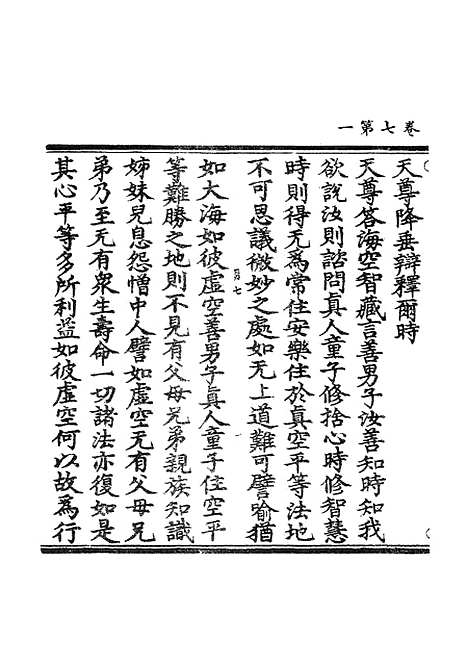 卷七第一
天尊降垂辯釋爾時
天尊答海空智藏言善男子汝善知時知我
欲說法則諮問真人童子修捨心時修智慧
時則得无為常住安樂住於真空平等法地
不可思議微妙之處如无上道難可譬喻猶
如大海如彼虛空善男子真人童子住空平
等難勝之地則不見有父母兄弟親族知識
姊妹兒息怨憎中人譬如虛空无有父母兄
弟乃至无有衆生壽命一切諸法亦復如是
其心平等多所利益如彼虛空何以故為行